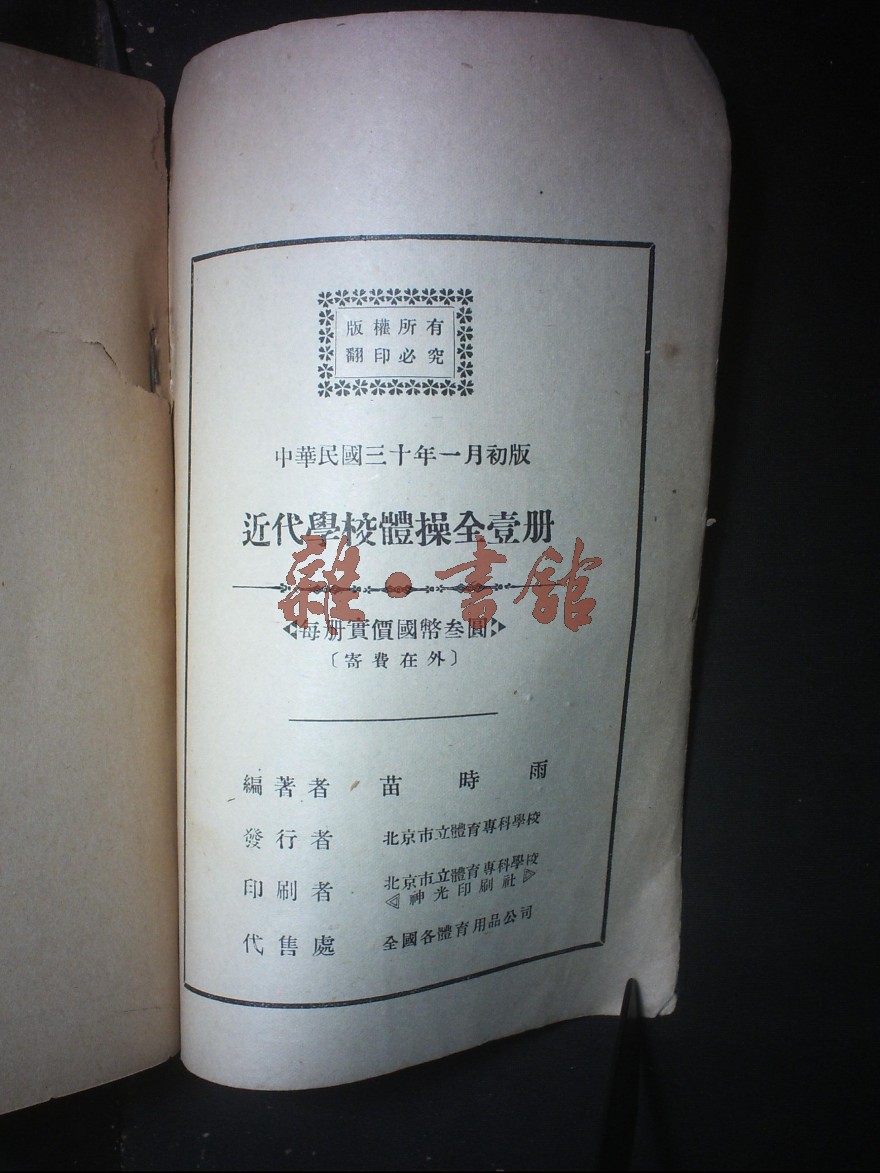 版權所有
翻印必究
中華民國三十年一月初版
近代學校體操全壹册
雜·書館
每册實價國幣叁圓
〔寄費在外〕
編著者 苗時雨
發行者 北京市立體育專科學校
印刷者 北京市立體育專科學校
神光印刷社
代售處 全國各體育用品公司